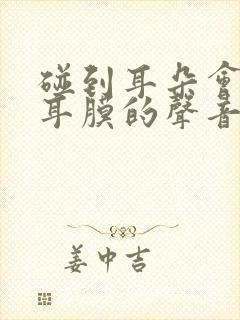 碰到耳朵會
耳膜的聲音
姜中吉